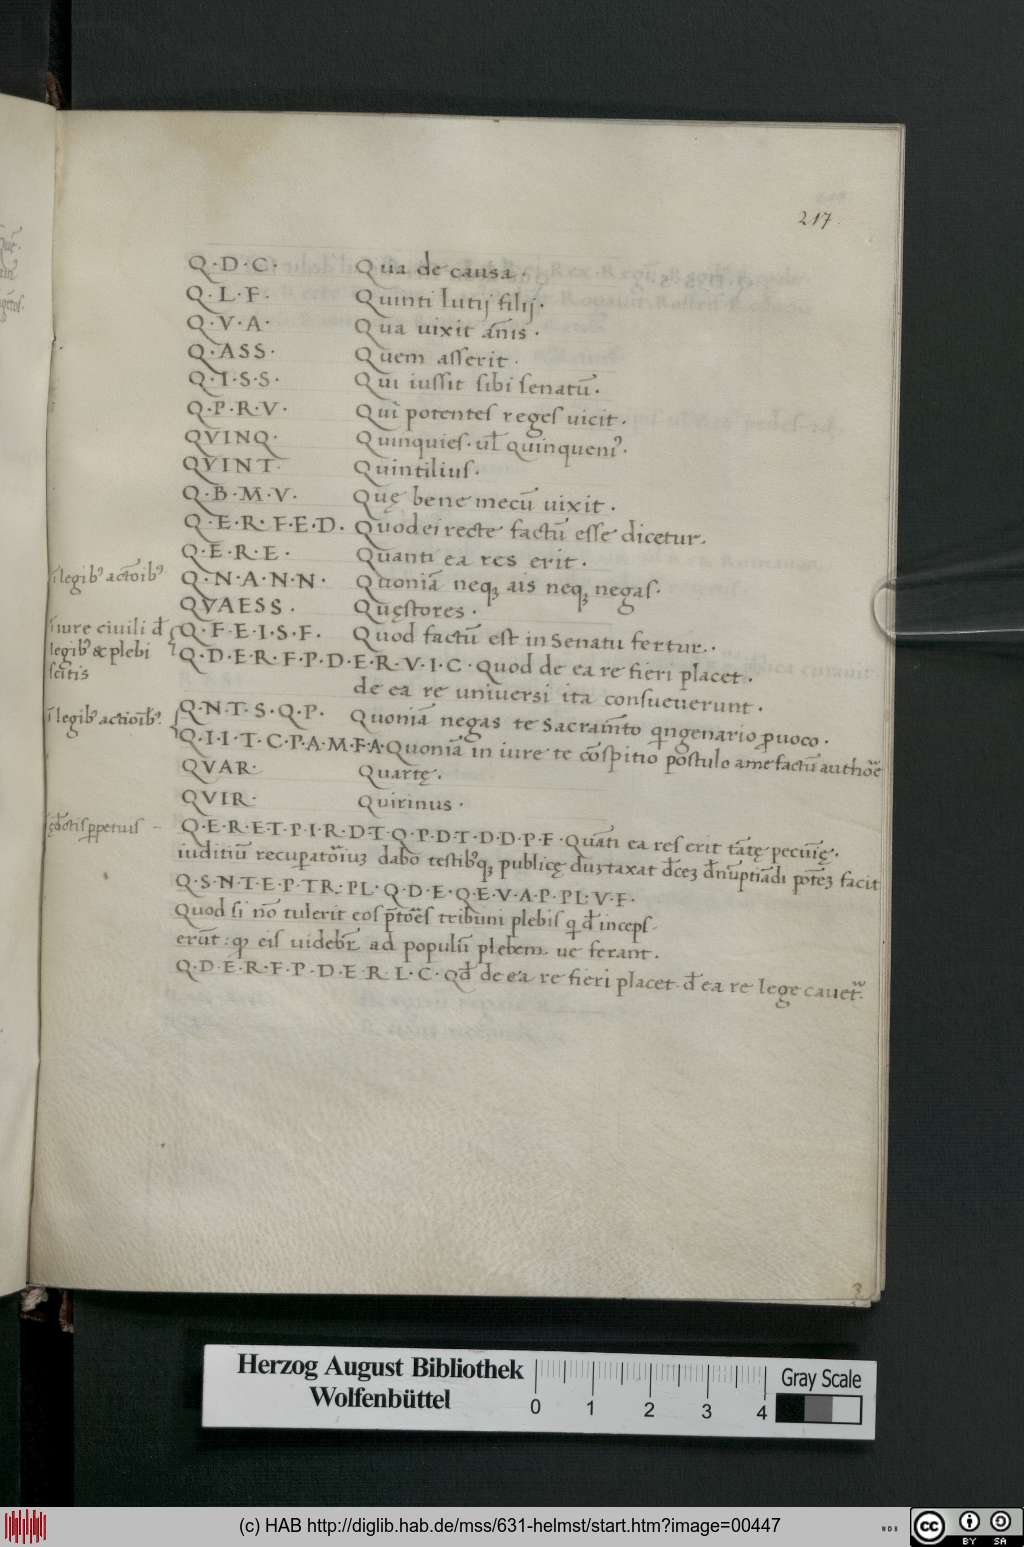 217.
Q·D·C· Qua de causa·
Q·L·F· Quinti lutij filij·
Q·V·A· Qua uixit añis·
Q·ASS· Quem asserit·
Q·I·S·S· Qui iussit sibi senatū·
Q·P·R·V· Qui potentes reges uicit·
QVINQ· Quinquies· ul̄ quinqueni⁹·
QVINT· Quintilius·
Q·B·M·V· Quę bene mecū uixit·
Q·E·R·F·E·D· Quod ei recte factū esse dicetur·
Q·E·R·E· Quanti ea res erit·
ī legib⁹ actōib⁹ Q·N·A·N·N· Quoniā neq₃ ais neq₃ negas·
QVAESS· Quęstores·
ī iure ciuili đ Q·F·E·I·S·F· Quod factū est in Senatu fertur·
legib⁹ & plebi Q·D·E·R·F·P·D·E·R·V·I·C· Quod de ea re fieri placet·
scitis de ea re uniuersi ita consueuerunt·
ī legib⁹ actioīb⁹· Q·N·T·S·Q·P· Quoniā negas te Sacram̄to qngenario puoco·
Q·I·I·T·C·P·A·M·F·A· Quoniā in iure te cōspitio postulo a me factū
QVAR· Quartę·
QVIR· Quirinus·
Q·E·R·E·T·P·I·R·D·T·Q·P·D·T·D·D·P·F· Quāti ea res erit tātę pecunię·
iuditiū dabo testib⁹q₃ publicę facit
Q·S·N·T·E·P·TR·PL·Q·D·E·Q·E·V·A·P·PL·V·F·
Quod si nō tulerit eos tribuni plebis q đ inceps
erūt: eis uidebr̄ ad populū plebem ue ferant·
Q·D·E·R·F·P·D·E·R·L·C· Qđ de ea re fieri placet đ ea re lege
Herzog August Bibliothek
Wolfenbüttel
0 1 2 3 4
Gray Scale
(c) HAB http://diglib.hab.de/mss/631-helmst/start.htm?image=00447
WDB
cc BY SA